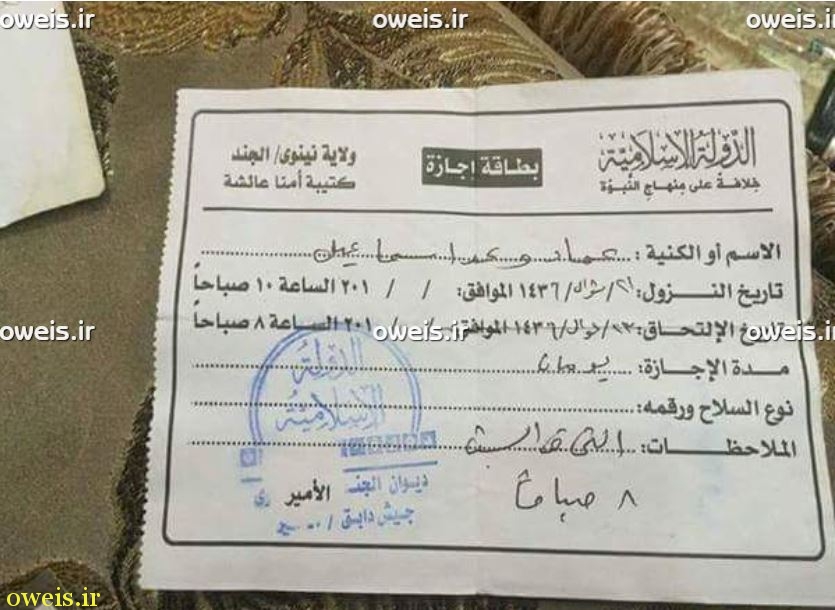 oweis.ir oweis.ir oweis.ir
الدولة الإسلامية
خلافة على منهاج النبوة
بطاقة اجازة
ولاية نينوى/ الجند
كتيبة أمنا عائشة
الاسم أو الكنية :
تاريخ النزول: ٢١/شوال/١٤٣٦ الموافق: / / ٢٠١ الساعة ١٠ صباحاً
تاريخ الإلتحاق: ٢٣/شوال/١٤٣٦ الموافق: / / ٢٠١ الساعة ٨ صباحاً
oweis.ir oweis.ir oweis.ir
مدة الإجازة: يومان
نوع السلاح ورقمه:
الملاحظات: السبت
٨ صباحاً
الدولة
الإسلامية
ديوان الجند
الأمير
جيش دابق /
oweis.ir